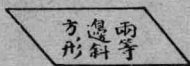 兩等
邊斜
方形